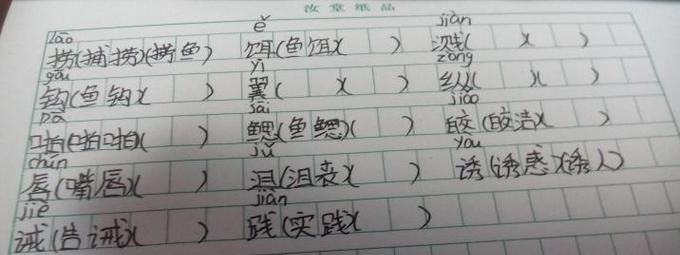 汝意纸品
lāo ěr jiàn
捞(捕捞)(捞鱼) 饵(鱼饵)( ) 溅( )( )
gōu yì zòng
钩(鱼钩)( ) 翼( )( ) 纵( )( )
pā sāi jiǎo
啪(啪啪)( ) 鳃(鱼鳃)( ) 皎(皎洁)( )
chún jǔ yòu
唇(嘴唇)( ) 沮(沮丧)( ) 诱(诱惑)(诱人)
jiè jiàn
诫(告诫)( ) 践(实践)( )